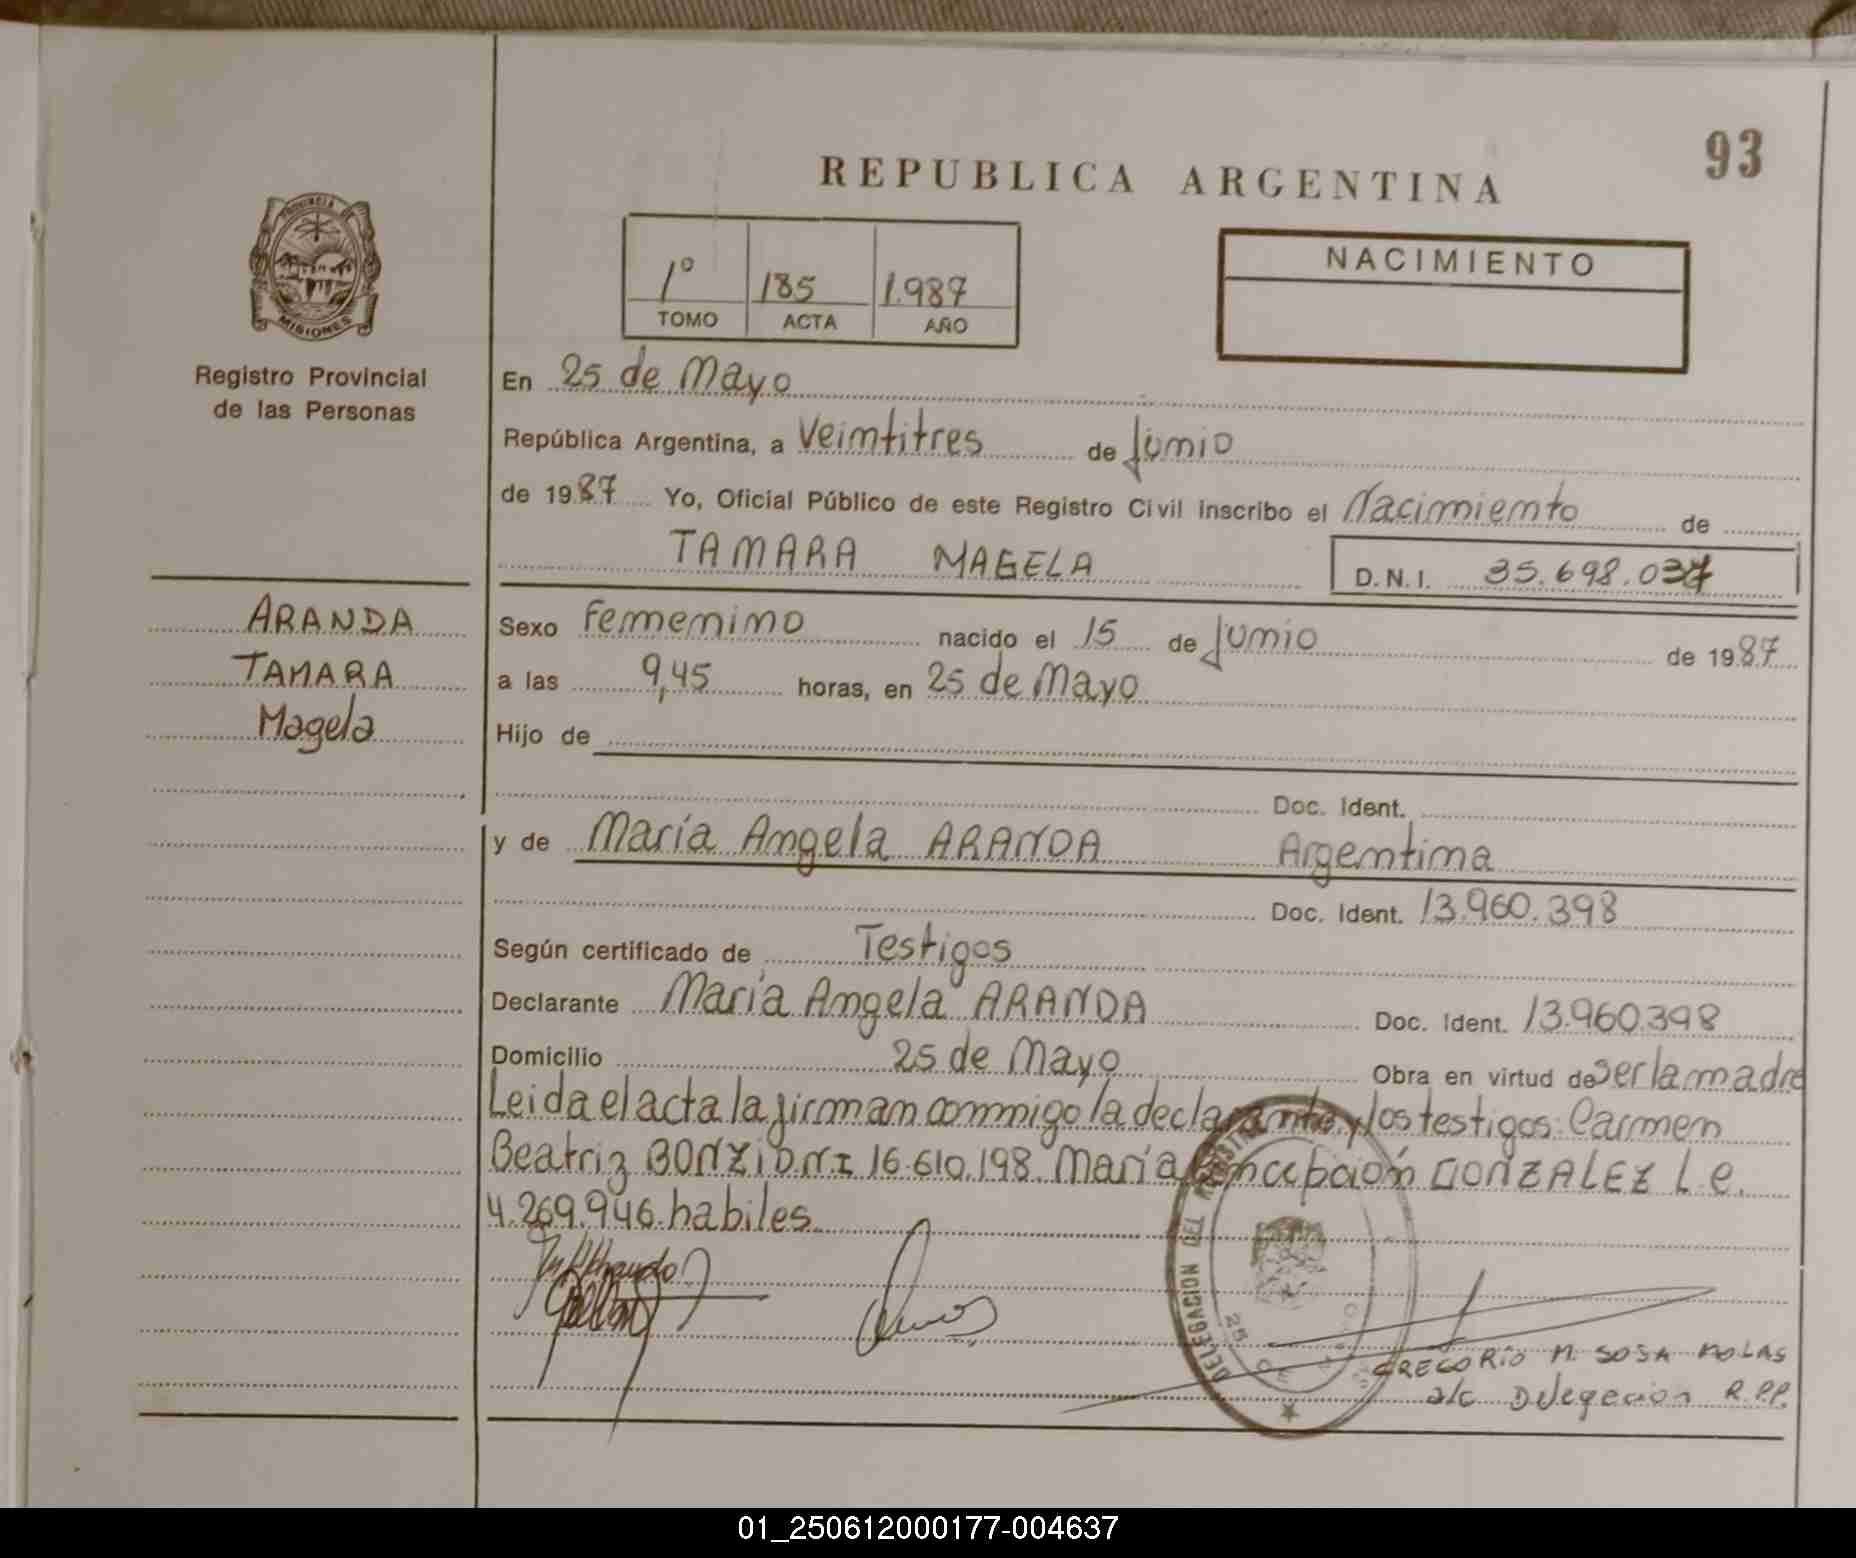 93
REPUBLICA ARGENTINA
PROVINCIA DE
MISIONES
Registro Provincial
de las Personas
1º 185 1.987
TOMO ACTA AÑO
NACIMIENTO
En 25 de Mayo
República Argentina, a Veimtitres de Jumio
de 1987 Yo, Oficial Público de este Registro Civil inscribo el Nacimiemto de
TAMARA MAGELA D.N.I. 35.698.03
ARANDA
TAMARA
Magela
Sexo Femenimo nacido el 15 de Jumio de 1987
a las 9,45 horas, en 25 de Mayo
Hijo de
Doc. Ident.
y de María Amgela ARANDA Argemtima
Doc. Ident. 13.960.398
Según certificado de Testigos
Declarante María Amgela ARANDA Doc. Ident. 13.960.398
Domicilio 25 de Mayo Obra en virtud de ser la madre
Leida el acta la firman commigo la declarante y los testigos: Carmen
Beatriz BONZI D.N.I 16.610.198. María Comcepcióm GONZALEZ L.e.
4.269.946. habiles.
DELEGACION DEL REGISTRO
25 DE
GREGORIO M. SOSA MOLAS
a/c Delegacion R.P.P.
01_250612000177-004637